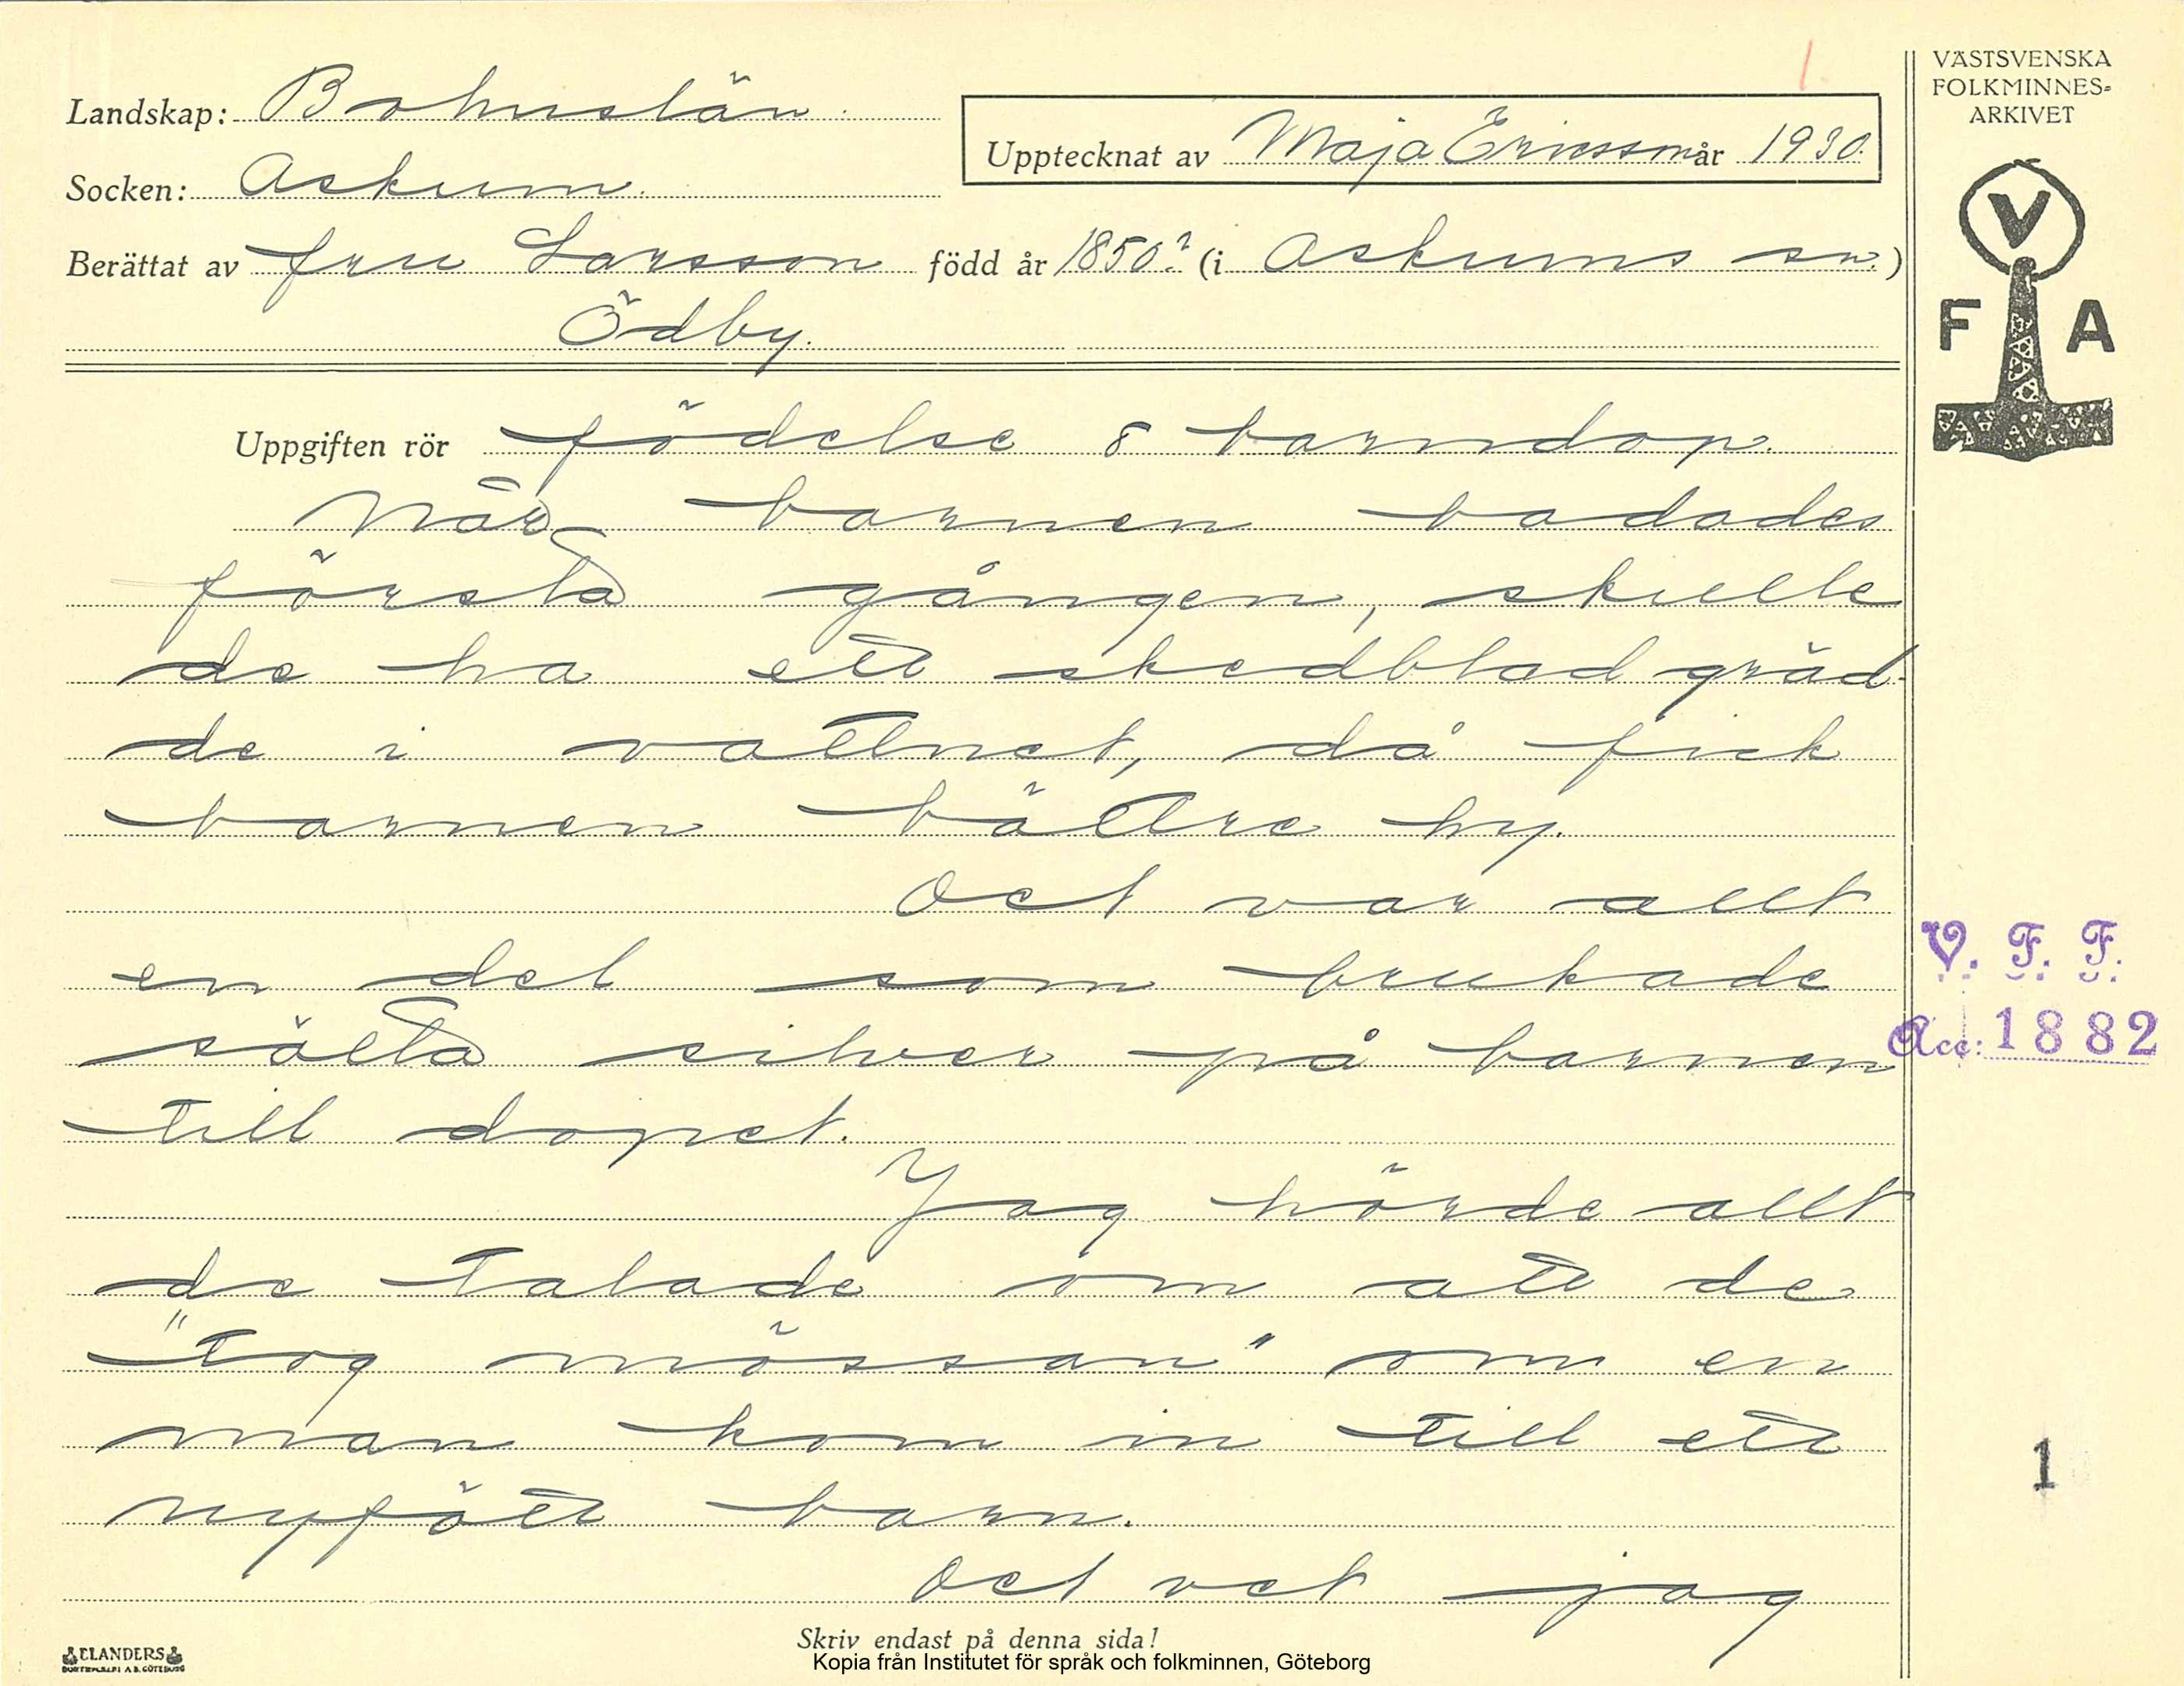 Landskap: Bohuslän
Socken: Askum
Upptecknat av Maja Ericsson år 1930.
Berättat av fru Larsson född år 1850? (i Askums sn.)
Ödby.
VÄSTSVENSKA
FOLKMINNES-
ARKIVET
V
F A
Uppgiften rör födelse & barndop.
När barnen badades
första gången, skulle
de ha ett skedblad gräd-
de i vattnet, då fick
barnen bättre hy.
Det var allt
en del som brukade
sätta silver på barnen
till dopet.
Jag hörde allt
de talade om att de
"tog mössan" om en
man kom in till ett
nyfött barn.
Det vet jag
V. F. F.
Acc: 1882
1
Skriv endast på denna sida!
Kopia från Institutet för språk och folkminnen, Göteborg
ELANDERS